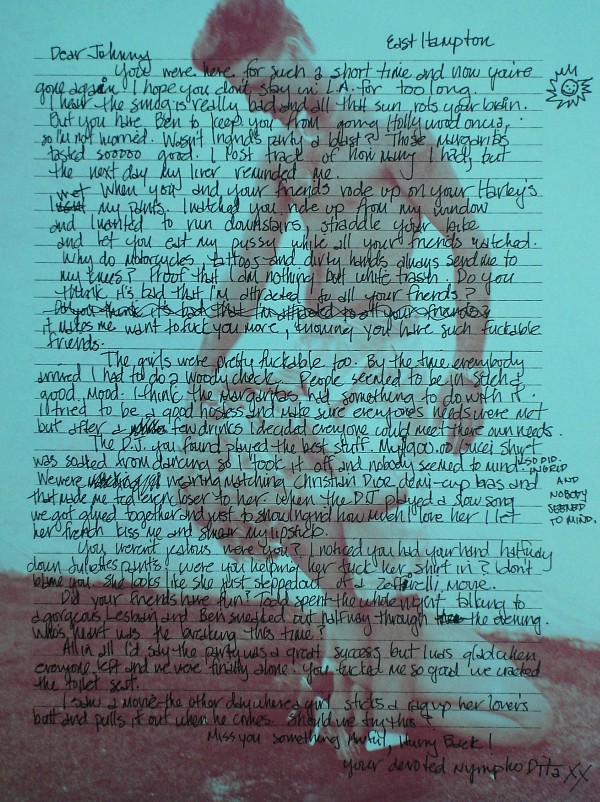 East Hampton
Dear Johnny
You were here for such a short time and now you're
gone again. I hope you don't stay in L.A. for too long.
I hear the smog is really bad and all that sun rots your brain.
But you have Ben to keep you from going Hollywood on us,
so I'm not worried. Wasn't Ingrid's party a blast? Those margaritas
tasted sooooo good. I lost track of how many I had, but
the next day my liver reminded me.
When you and your friends rode up on your Harley's
I wet my pants. I watched you ride up from my window
and I wanted to run downstairs, straddle your bike
and let you eat my pussy while all your friends watched.
Why do motorcycles, tattoos and dirty hands always send me to
my knees? Proof that I am nothing but white trash. Do you
think it's bad that I'm attracted to all your friends?
Do you think it's bad that I'm attracted to all your friends?
it makes me want to fuck you more, knowing you have such fuckable
friends.
The girls were pretty fuckable too. By the time everybody
arrived I had to do a woody check. People seemed to be in such a
good mood. I think the margaritas had something to do with it.
I tried to be a good hostess and make sure everyone's needs were met
but after a few drinks I decided everyone could meet there own needs.
The D.J. you found played the best stuff. My $900.00 Gucci shirt
was soaked from dancing so I took it off and nobody seemed to mind.
so did Ingrid and nobody seemed to mind.
We were wearing matching Christian Dior demi-cup bras and
that made me feel even closer to her. When the D.J. played a slow song
we got glued together and just to show Ingrid how much I love her I let
her french kiss me and smear my lipstick.
You weren't jealous were you? I noticed you had your hand halfway
down Juliette's pants. Were you helping her tuck her shirt in? I don't
blame you. She looks like she just stepped out of a Zeffirelli movie.
Did your friends have fun? Todd spent the whole night talking to
a gorgeous Lesbian and Ben sneaked out halfway through the evening.
Who's heart was he breaking this time?
All in all I'd say the party was a great success but I was glad when
everyone left and we were finally alone. You fucked me so good we cracked
the toilet seat.
I saw a movie the other day where a girl sticks a rag up her lover's
butt and pulls it out when he comes. Should we try this?
Miss you something Awful, Hurry Back!
Your devoted Nympho Dita XX